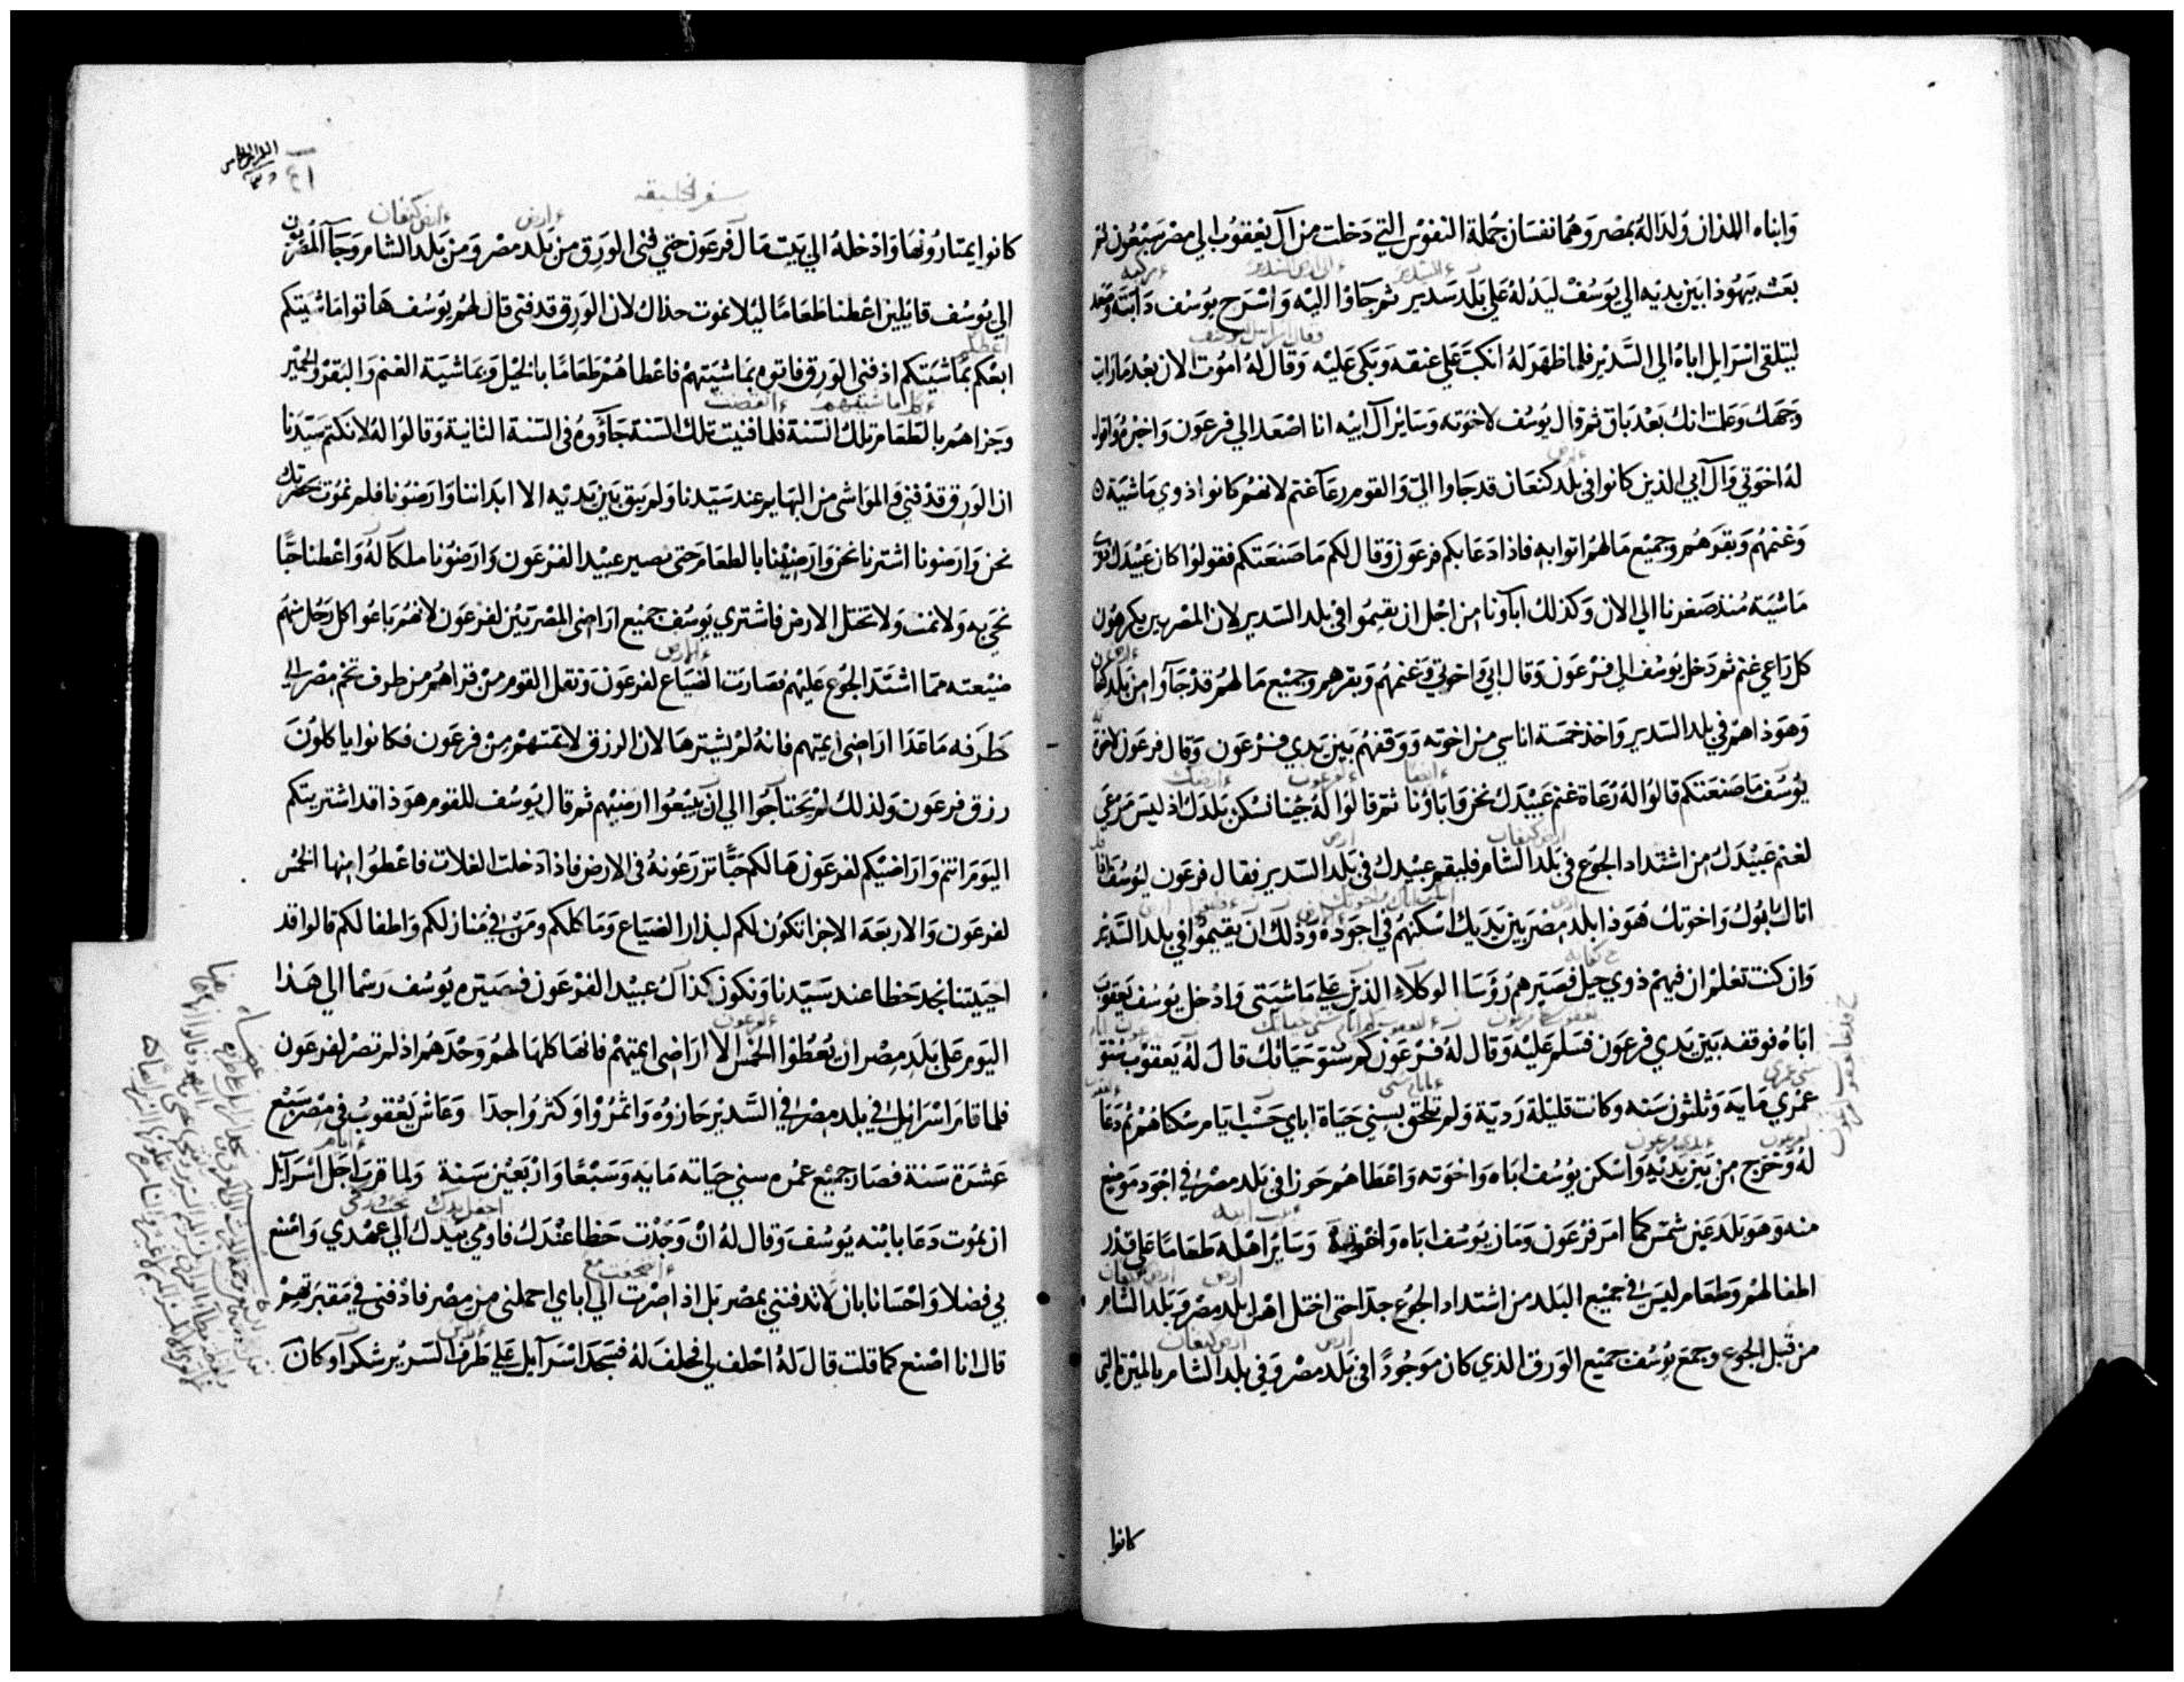 وابناه اللذان ولدا له بمصر وهما نفسان جملة النفوس التي دخلت من آل يعقوب الي مصر سبعون ثم
بعث يهوذا بين يديه الي يوسف ليدله علي بلد سدير ثم جاوا اليه واسرج يوسف دابته وصعد
ليتلقي اسرايل اباه الي السدير فلما ظهر له انكب علي عنقه وبكي عليه وقال له اموت الان بعد ما رايت
وجهك وعلمت انك بعد باق ثم قال يوسف لاخوته وساير آل ابيه انا اصعد الي فرعون واخبره واقول
له اخوتي وآل آبي الذين كانوا في بلد كنعان قد جاوا الي والقوم رعآ غنم لانهم كانوا ذوي ماشية
وغنمهم وبقرهم وجميع مالهم اتوا به فاذا دعا بكم فرعون وقال لكم ما صنعتكم فقولوا كان عبيدك ذوي
ماشية منذ صغرنا الي الان وكذلك اباونا من اجل ان تقيموا في بلد السدير لان المصريين يكرهون
كل راعي غنم ثم دخل يوسف الي فرعون وقال ابي واخوتي وغنمهم وبقرهم وجميع مالهم قد جآوا من بلد كنعان
وهوذا هم في بلد السدير واخذ خمسة اناس من اخوته ووقفهم بين يدي فرعون وقال فرعون لاخوة
يوسف ما صنعتكم قالوا له رعاة غنم عبيدك نحن واباونا ثم قالوا له جينا نسكن بلدك اذ ليس مرعي
لغنم عبيدك من اشتداد الجوع في بلد الشام فليقم عبيدك في بلد السدير فقال فرعون ليوسف اذا
اتاك ابوك واخوتك هوذا بلد مصر بين يديك اسكنهم في اجوده وذلك ان يقيموا في بلد السدير
وان كنت تعلم ان فيهم ذوي حيل فصيرهم رؤسا الوكلاء الذين علي ماشيتي وادخل يوسف يعقوب
اباه فوقفه بين يدي فرعون فسلم عليه وقال له فرعون كم سنو حياتك قال له يعقوب سنو
عمري مايه وثلثون سنه وكانت قليلة ردية ولم تلحق بسني حياة اباي حسب ايام سكناهم ثم دعا
له وخرج من بين يديه واسكن يوسف اباه واخوته واعطاهم حوزا في بلد مصر في اجود موضع
منه وهو بلد عين شمس كما امر فرعون ومان يوسف اباه واخوته وساير اهله طعاما علي قدر
اطفالهم وطعام ليس في جميع البلد من اشتداد الجوع جدا حتي اختل اهل بلد مصر وبلد الشام
من قبل الجوع وجمع يوسف جميع الورق الذي كان موجودا في بلد مصر وفي بلد الشام بالميرة التي
كانوا
سفر الخليقه
٤١
كانوا يمتارونها وادخله الي بيت مال فرعون حتي فني الورق من بلد مصر ومن بلد الشام وجآ المصريون
الي يوسف قايلين اعطنا طعاما ليلا نموت حذاك لان الورق قد فني قال لهم يوسف هاتوا ماشيتكم
ابعكم بماشيتكم اذ فني الورق فاتوه بماشيتهم فاعطاهم طعاما بالخيل وبماشية الغنم والبقر والحمير
وجزاهم بالطعام تلك السنة فلما فنيت تلك السنة جآووه في السنة الثانية وقالوا له لا نكتم سيدنا
ان الورق قد فني والمواشي من البهايم عند سيدنا ولم يبق بين يديه الا ابداننا وارضونا فلم نموت بحضرتك
نحن وارضونا اشترنا نحن وارضينا بالطعام حتي نصير عبيدا لفرعون وارضونا ملكا له واعطنا حبا
نحيي به ولا نمت ولا تختل الارض فاشتري يوسف جميع اراضي المصريين لفرعون لانهم باعوا كل رجل منهم
ضيعته مما اشتد الجوع عليهم فصارت الضياع لفرعون ونقل القوم من قراهم من طرف تخم مصر الي
طرفه ما عدا اراضي ايمتهم فانه لم يشترها لان الرزق لايمتهم من فرعون فكانوا ياكلون
رزق فرعون ولذلك لم يحتاجوا الي ان يبيعوا ارضيهم ثم قال يوسف للقوم هوذا قد اشتريتكم
اليوم انتم واراضيكم لفرعون هالكم حبا تزرعونه في الارض فاذا دخلت الغلات فاعطوا منها الخمس
لفرعون والاربعة الاجزا تكون لكم لبذار الضياع وماكلكم ومن في منازلكم واطفالكم قالوا قد
احييتنا نجد حظا عند سيدنا ونكون كذاك عبيدا لفرعون فصيره يوسف رسما الي هذا
اليوم علي بلد مصر ان يعطوا الخمس الا اراضي ايمتهم فانها كلها لهم وحدهم اذ لم تصر لفرعون
فلما قام اسرايل في بلد مصر في السدير حازوه واثمروا وكثروا جدا وعاش يعقوب في مصر سبع
عشرة سنة فصار جميع عمره سني حياته مايه وسبعا واربعين سنة ولما قرب اجل اسرآيل
ان يموت دعا بابنه يوسف وقال له ان وجدت حظا عندك فاومي بيدك الي عهدي واصنع
بي فضلا واحسانا بان لا تدفنني بمصر بل اذا صرت الي اباي احملني من مصر فادفني في مقبرتهم
قال انا اصنع كما قلت قال له احلف لي فحلف له فسجد اسرآيل علي طرف السرير شكرا وكان